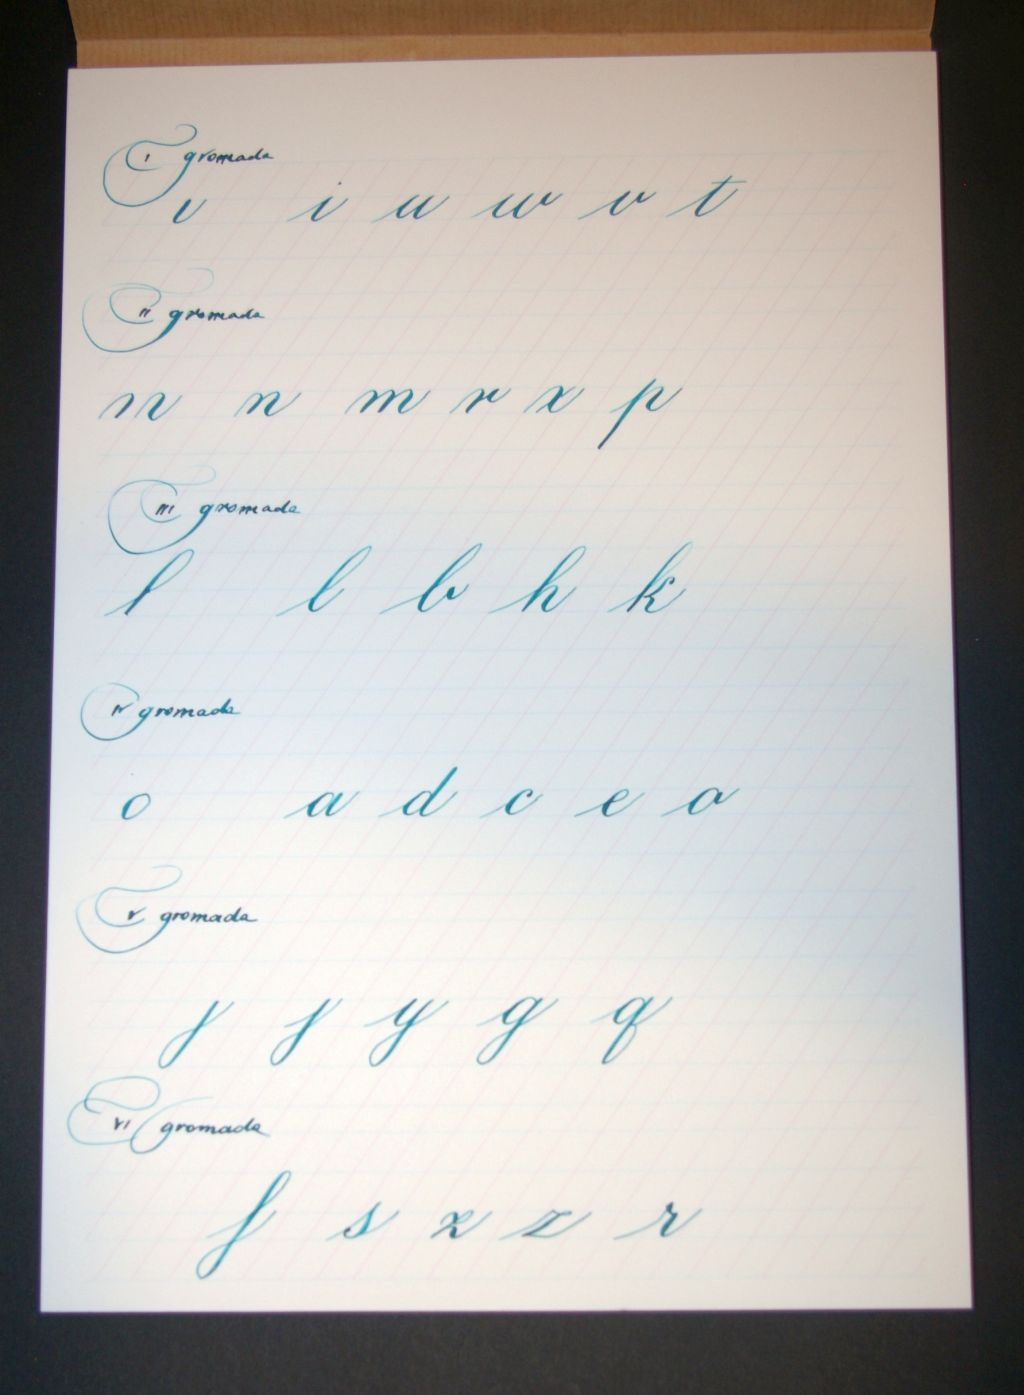 I gromada
ı i u w v t
II gromada
n n m r x p
III gromada
l l b h k
IV gromada
o a d c e o
V gromada
j j y g q
VI gromada
f s z z r